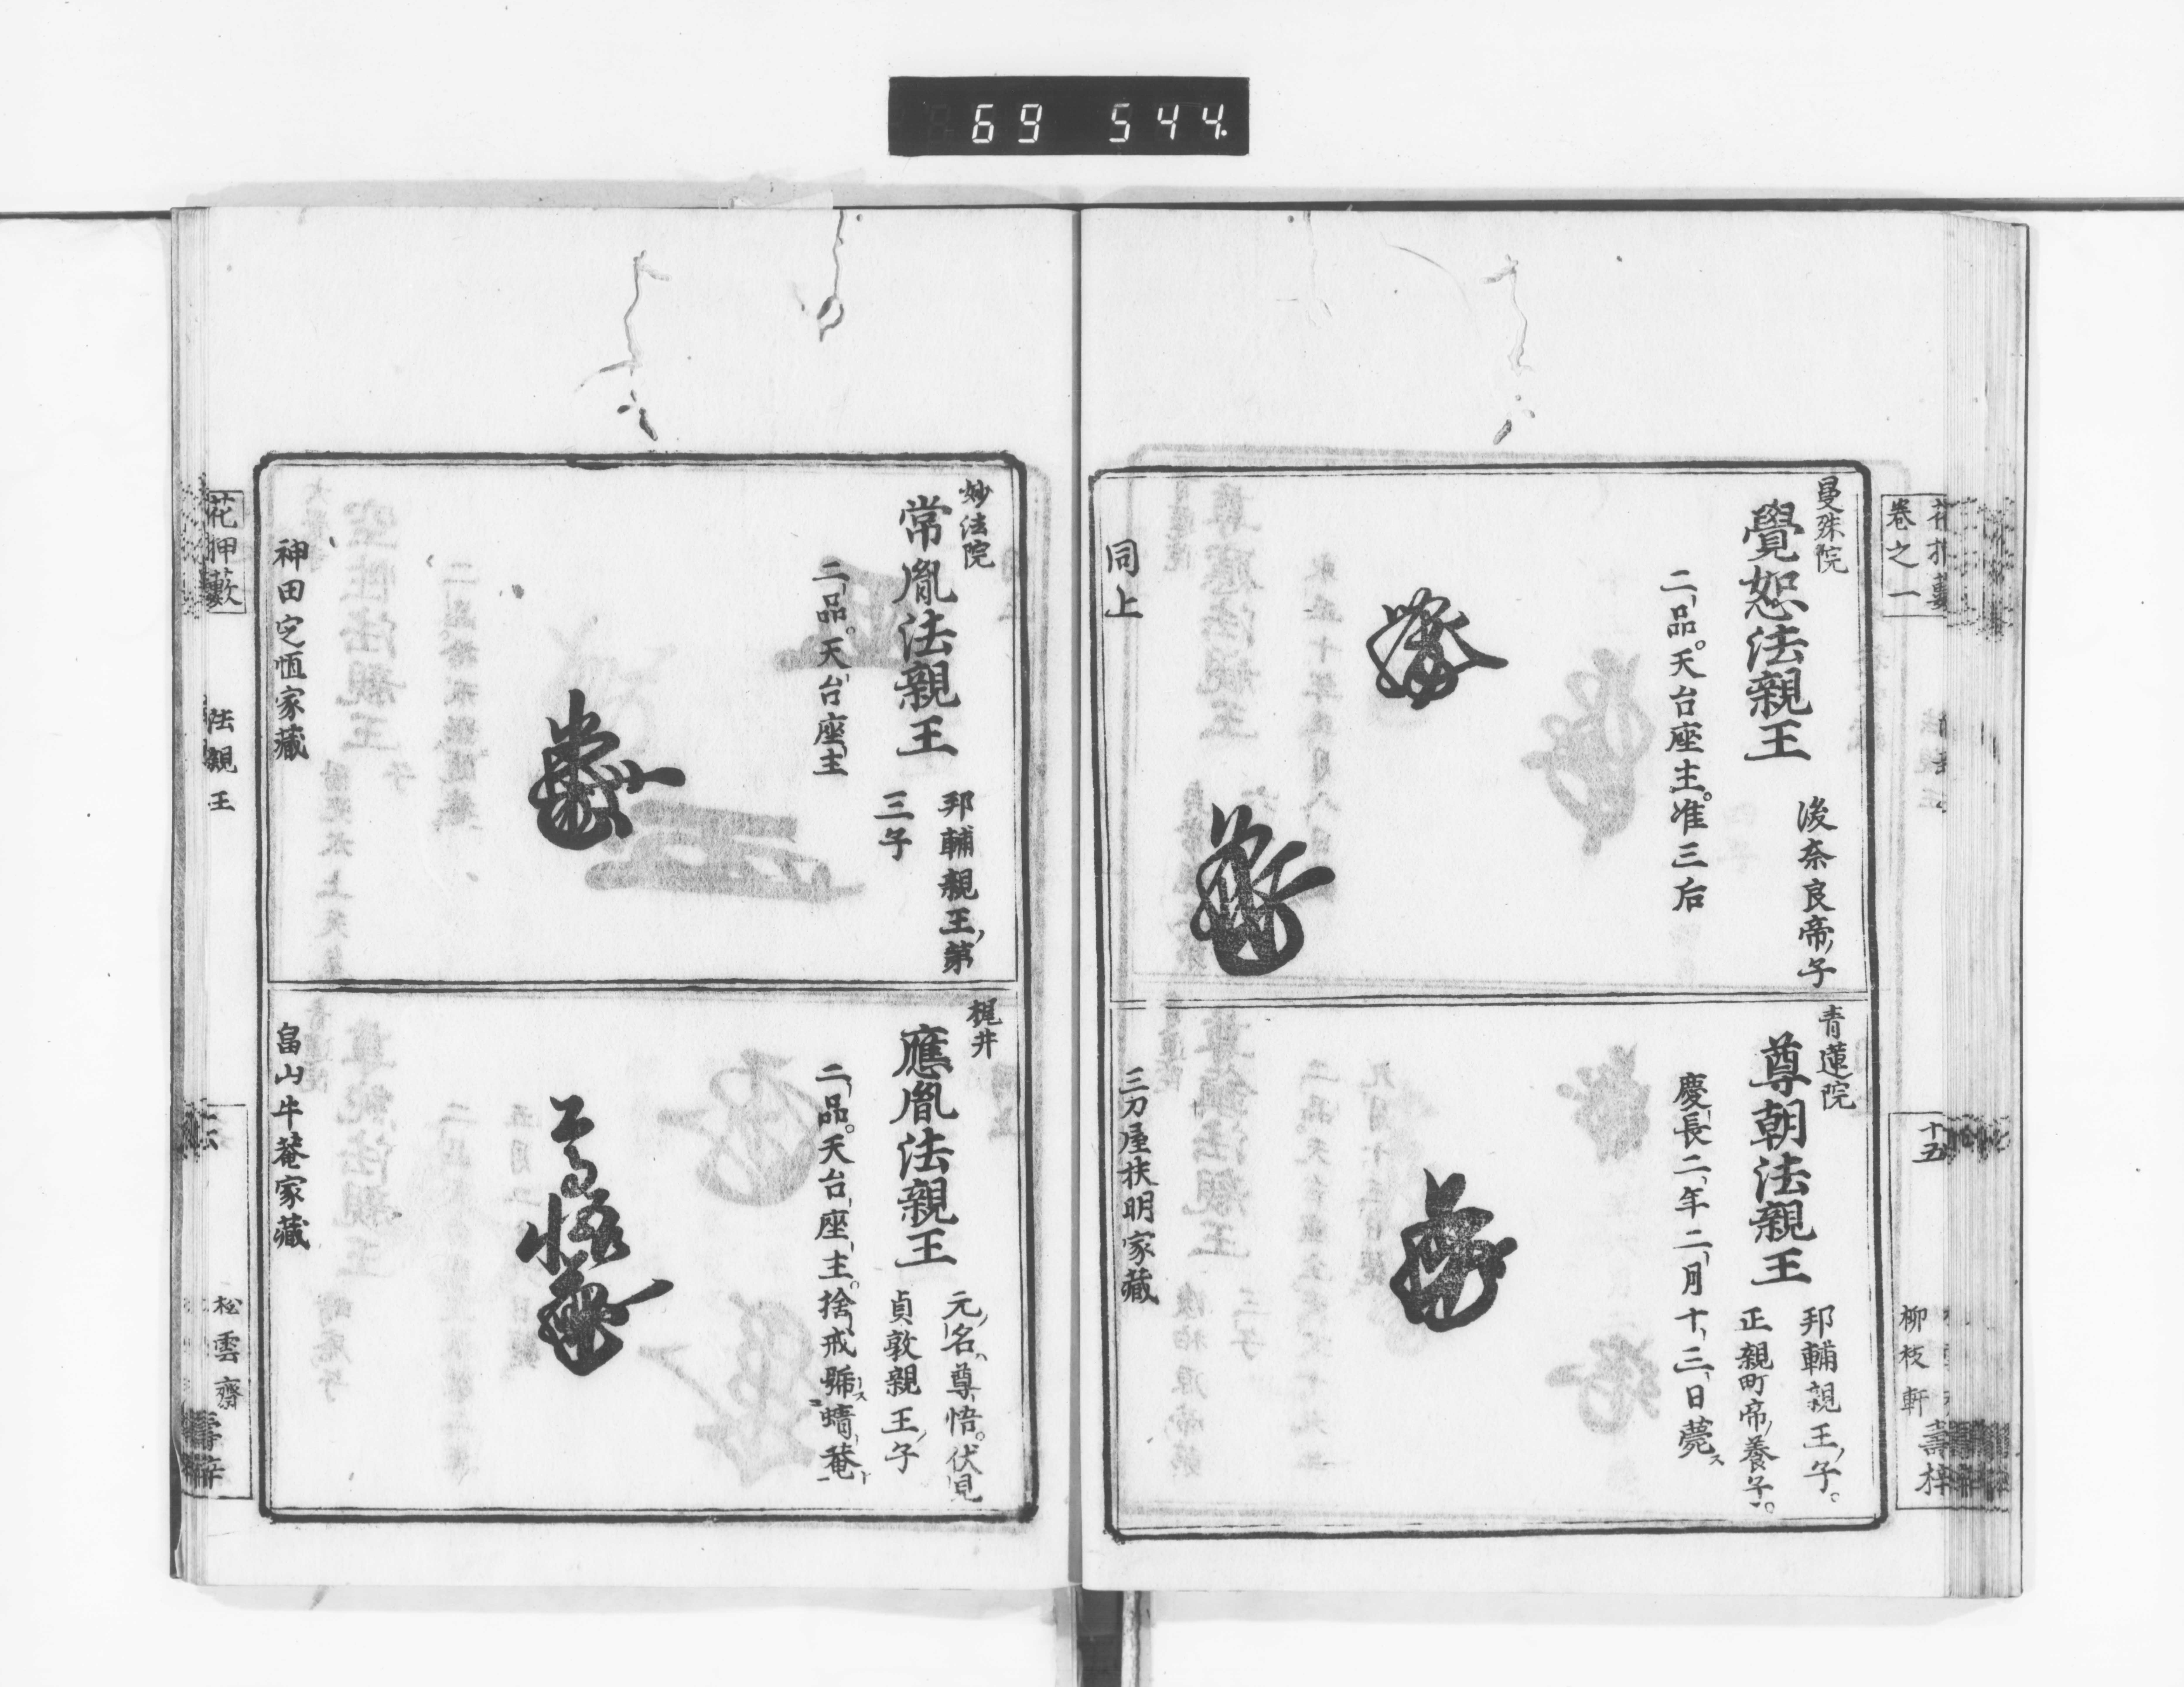 69 544.
卷之一
十五
柳枝軒
壽梓
曼殊院
覺恕法親王
後奈良帝ノ子
二品。天台座主。准三后
同上
青蓮院
尊朝法親王
邦輔親王ノ子。
正親町帝ノ養子。
慶長二年二月十三日薨ス
三刀屋扶明家藏
妙法院
常胤法親王
邦輔親王ノ第
三子
二品。天台座主
神田定恒家藏
梶井
應胤法親王
元ノ名尊悟。伏見
貞敦親王ノ子
二品。天台座主。捨戒號ス蜻菴ト
畠山牛菴家藏
花押藪
法親王
松雲齋